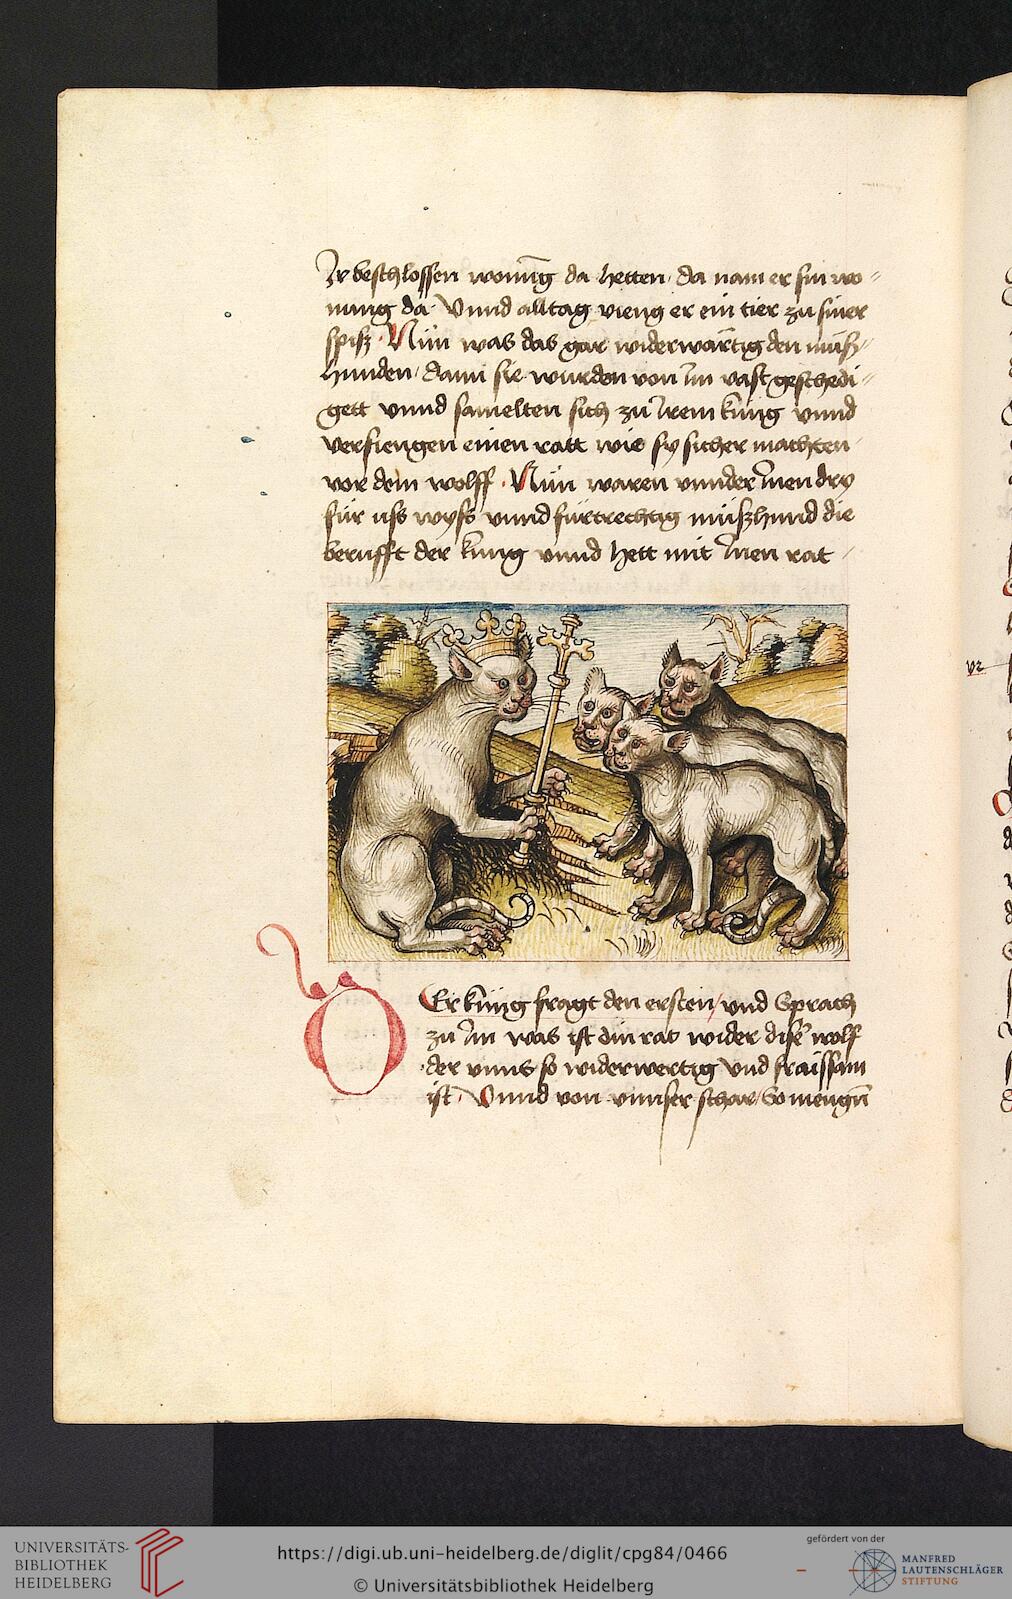 Ir beschlossen wonung da hetten da nam er sin wo-
nung da Vnnd alltag vieng er ein tier zu siner
spisz Nün was das gar widerwärtig den müsz-
hunden dann sie wurden von im vast geschedi-
gett vnnd samelten sich zu irem küng vnnd
verfiengen einen ratt wie sy sicher machten
vor dem wolff Nün waren vnnder inen dry
für uss wyss vnnd fürtrechtig müszhund die
berufft der küng vnnd hett mit inen rat
DEr küng fragt den ersten vnd Sprach
zu im was ist din rat wider disen wolf
der vnns so widerwertig vnd fraissam
ist Vnnd von vnnser schar so mengen
UNIVERSITÄTS-
BIBLIOTHEK
HEIDELBERG
https://digi.ub.uni-heidelberg.de/diglit/cpg84/0466
© Universitätsbibliothek Heidelberg
gefördert von der
MANFRED
LAUTENSCHLÄGER
STIFTUNG